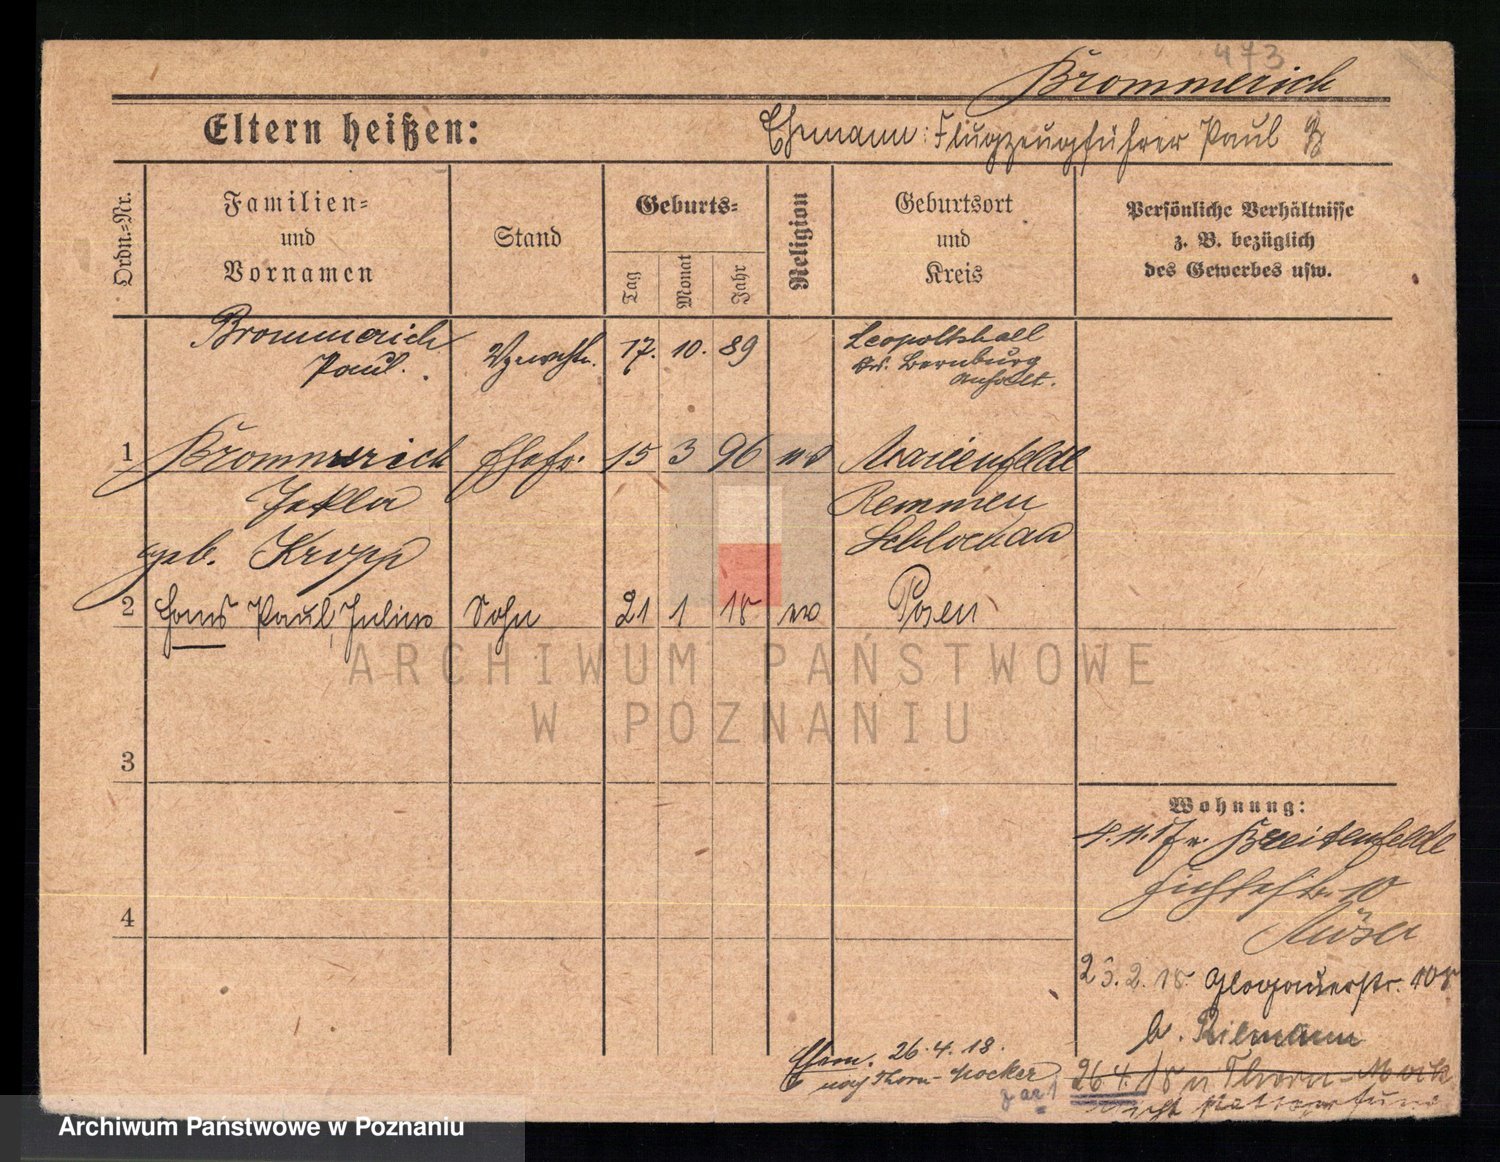 473
Brommerich
Eltern heißen:
Ehemann: Flugzeugführer Paul B
Ordn.=Nr.
Familien=
und
Vornamen
Stand
Geburts=
Tag
Monat
Jahr
Religion
Geburtsort
und
Kreis
Persönliche Verhältnisse
z. B. bezüglich
des Gewerbes usw.
Brommerich
Paul.
17. 10. 89
Leopoltshall
Krs. Bernburg
Anhalt.
1
Brommerich Ehefr. 15 3 96 ev Marienfelde
Tekla
Remmen
Schlochau
geb. Kropp
2
Hans Paul, Julius Sohn 21 1 18 ev Posen
3
4
Wohnung:
4.11.17 v. Breitenfelde
Fichtestr. 10
23.2.18 Glogauerstr. 108
b. Rilmann
Ehem. 26.4.18.
nach Thorn-Mocker
26.4.18 n Thorn-Mock
nicht
ARCHIWUM PAŃSTWOWE
W POZNANIU
Archiwum Państwowe w Poznaniu